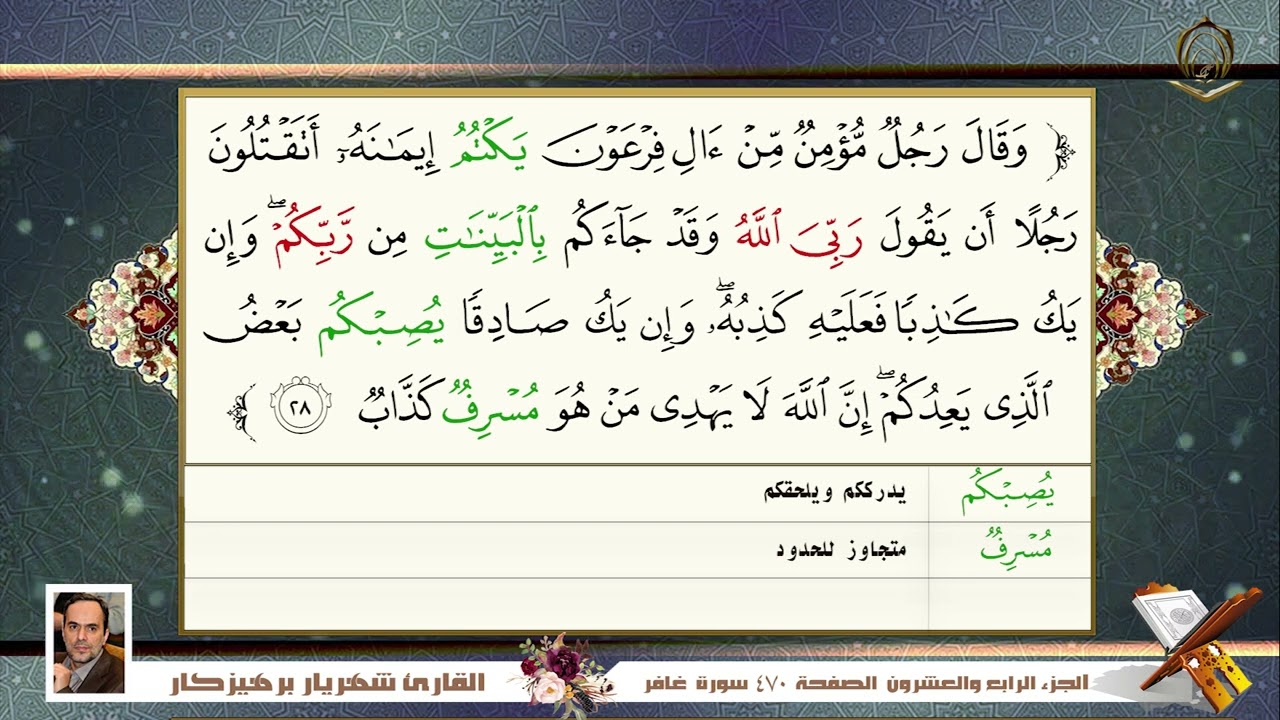 ﴿ وَقَالَ رَجُلٌ مُّؤْمِنٌ مِّنْ ءَالِ فِرْعَوْنَ يَكْتُمُ إِيمَٰنَهُۥٓ أَتَقْتُلُونَ
رَجُلًا أَن يَقُولَ رَبِّىَ ٱللَّهُ وَقَدْ جَآءَكُم بِٱلْبَيِّنَٰتِ مِن رَّبِّكُمْ ۖ وَإِن
يَكُ كَٰذِبًا فَعَلَيْهِ كَذِبُهُۥ ۖ وَإِن يَكُ صَادِقًا يُصِبْكُم بَعْضُ
ٱلَّذِى يَعِدُكُمْ ۖ إِنَّ ٱللَّهَ لَا يَهْدِى مَنْ هُوَ مُسْرِفٌ كَذَّابٌ ٢٨ ﴾
يُصِبْكُم يدرككم ويلحقكم
مُسْرِفٌ متجاوز للحدود
الجزء الرابع والعشرون الصفحة ٤٧٠ سورة غافر
القارئ شهريار برهيزكار